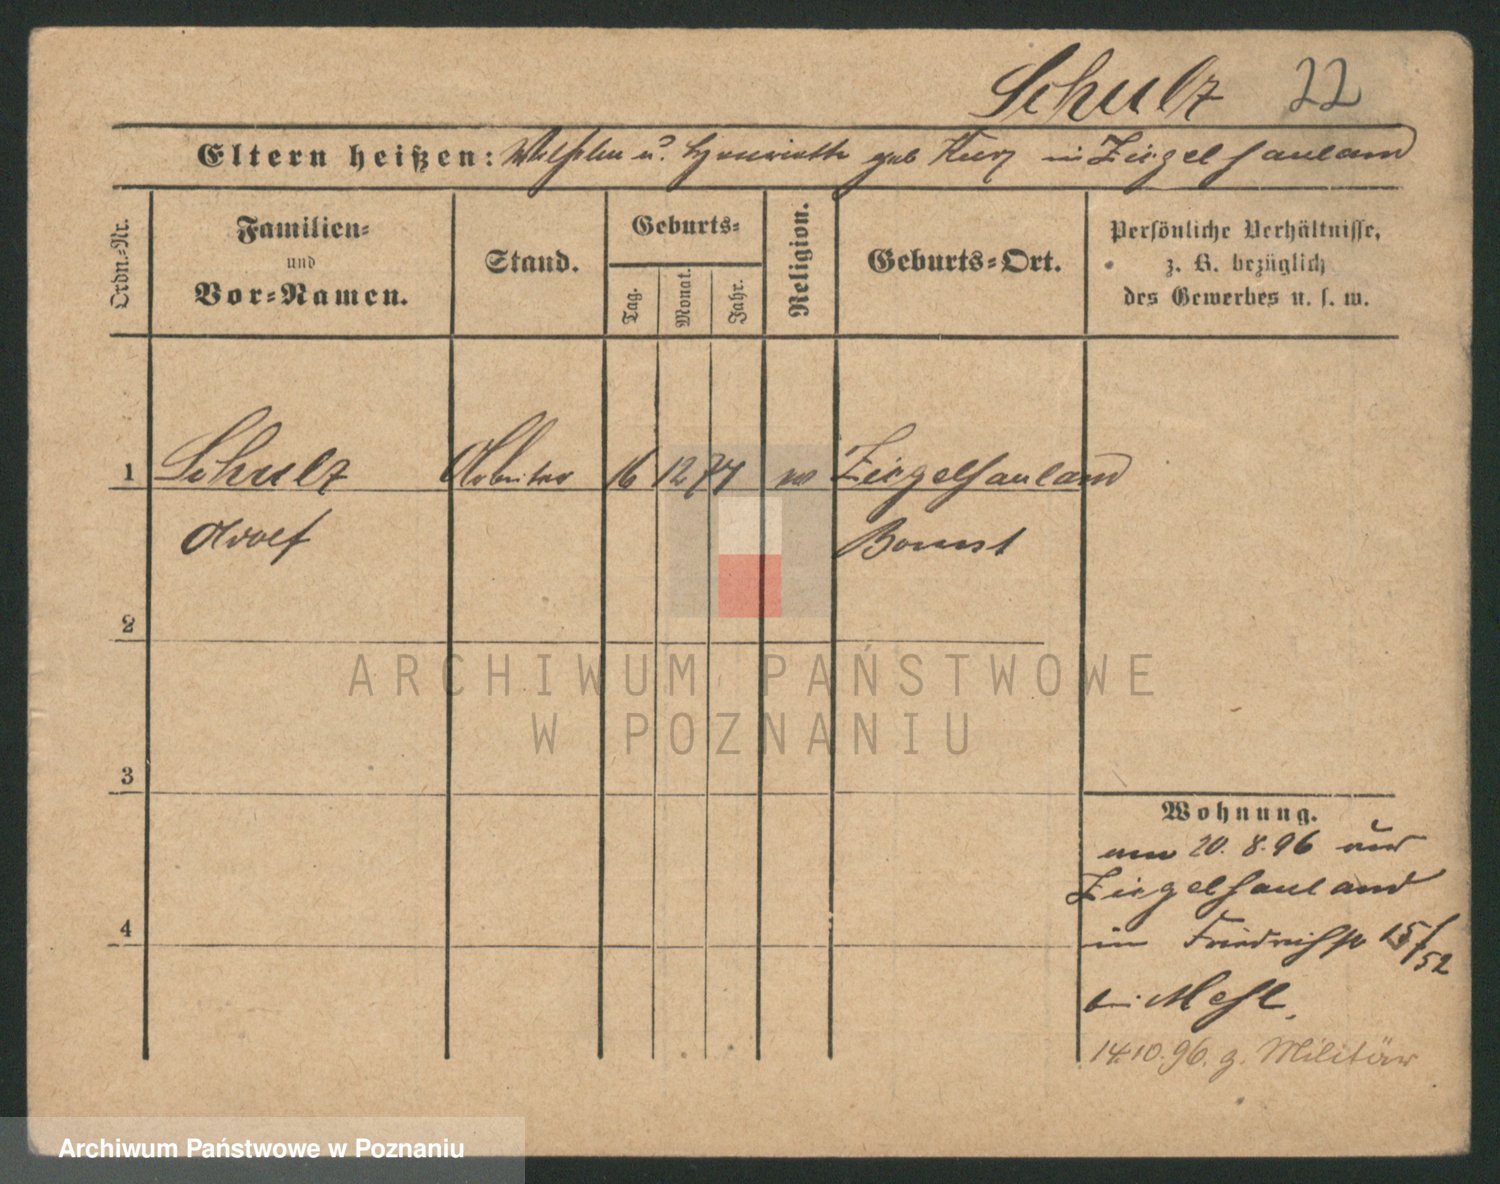 Schulz 22
Eltern heißen: Wilhelm u. Henriette geb Kurz in Ziegelhauland
Ordn.-Nr.
Familien-
und
Vor-Namen.
Stand.
Geburts-
Tag.
Monat.
Jahr.
Religion.
Geburts-Ort.
Persönliche Verhältnisse,
z. B. bezüglich
des Gewerbes u. s. w.
1 Schulz Arbeiter 16 12 74 ev Ziegelhauland
Adolf Bomst
2
3
4
Wohnung.
am 20. 8. 96 aus
Ziegelhauland
in Friedrichstr 15/52
bei Mehl.
14.10.96. z. Militär
ARCHIWUM PAŃSTWOWE
W POZNANIU
Archiwum Państwowe w Poznaniu